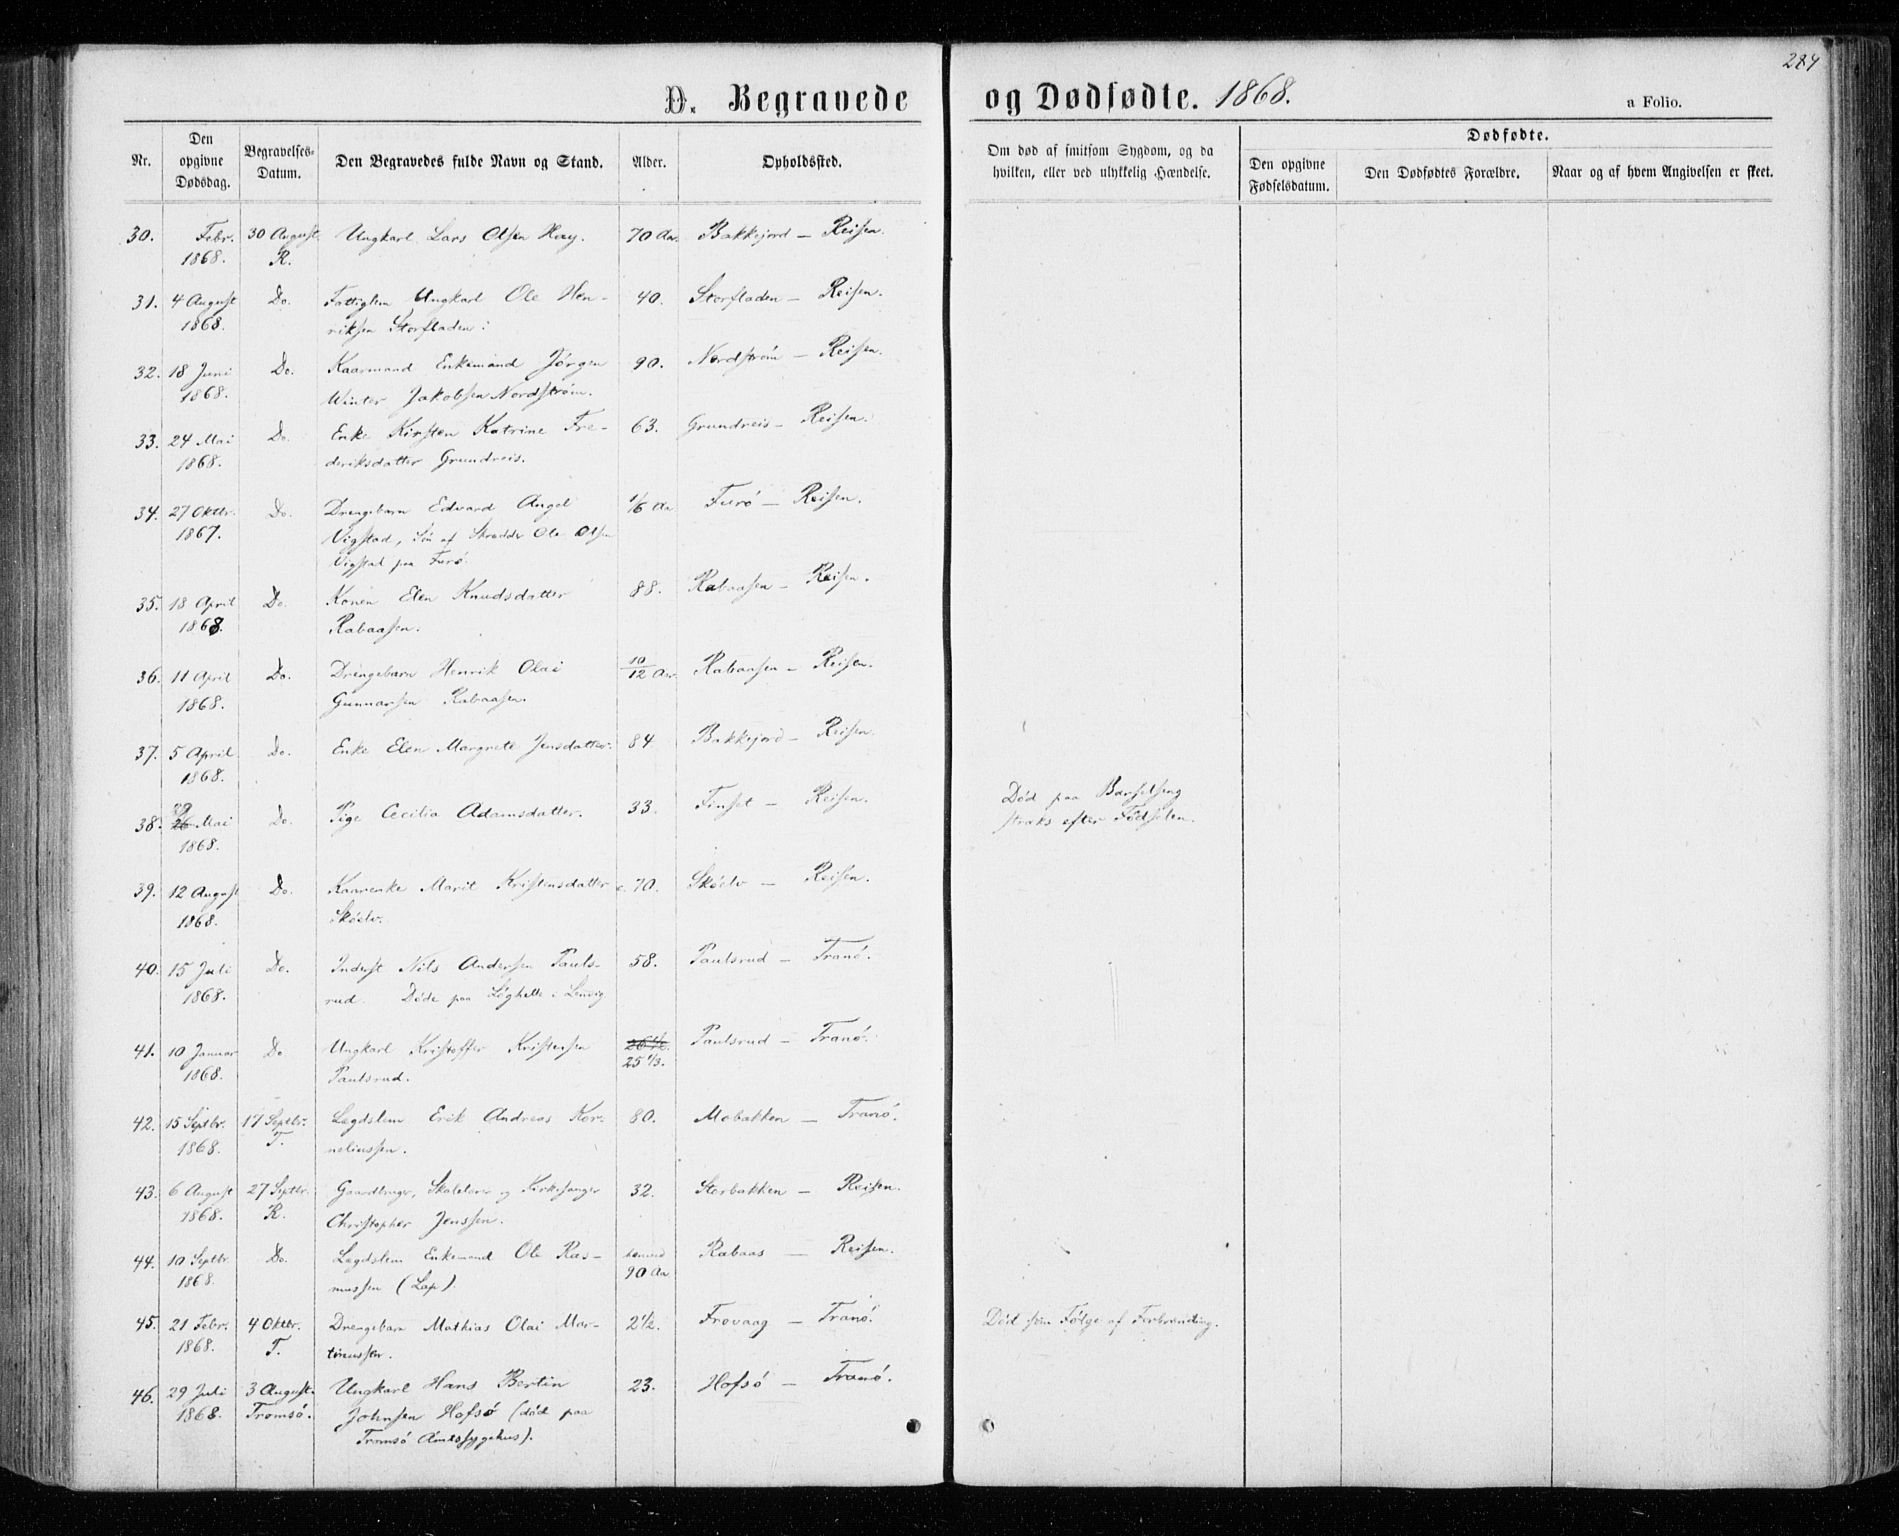 284
D. Begravede og Dødfødte. 1868.
a Folio.
Nr. Den opgivne Dødsdag. Begravelses-Datum. Den Begravedes fulde Navn og Stand. Alder. Opholdssted. Om død af smitsom Sygdom, og da hvilken, eller ved ulykkelig Hændelse. Dødfødte. Den opgivne Fødselsdatum. Den Dødfødtes Forældre. Naar og af hvem Angivelsen er skeet.
30. Febr. 30 August Ungkarl Lars Olsen 70 Aar. Bakkejord – Reisen.
1868. R.
31. 4 August Do. Fattiglem Ungkarl Ole Hen- 40. Storfladen – Reisen.
1868. riksen Storfladen.
32. 18 Juni Do. Kaarmand Enkemand Jørgen 90. Nordstrøm – Reisen.
1868. Winter Jakobsen Nordstrøm.
33. 24 Mai Do. Enke Kirsten Katrine Fre- 63. Grundreis – Reisen.
1868. deriksdatter Grundreis.
34. 27 Oktbr. Do. Drengebarn Edvard Angel 1/6 Aar Furø – Reisen.
1867. Vigstad, Søn af Skrædder Ole Olsen
Vigstad paa Furø.
35. 18 April Do. Konen Elen Knudsdatter 88. Rabaasen – Reisen.
1868. Rabaasen.
36. 11 April Do. Drengebarn Henrik Olai 10/12 Aar. Rabaasen – Reisen.
1868. Gunnarsen Rabaasen.
37. 5 April Do. Enke Elen Margrete Jensdatter. 84. Bakkejord – Reisen.
1868.
38. Mai Do. Pige Cecilia Adamsdatter. 33. Finset – Reisen. Død paa Barselseng
1868. straks efter Fødselen.
39. 12 August Do. Kaarenke Marit Kristensdatter c. 70. Skøelv – Reisen.
1868. Skøelv.
40. 15 Juli Do. Inderst Nils Andersen Pauls- 58. Paulsrud – Tranø.
1868. rud. Døde paa i Lenvig
41. 10 Januar Do Ungkarl Kristoffer Kristensen Paulsrud – Tranø.
1868. Paulsrud. 25 1/3.
42. 15 Septbr. 17 Septbr. Lægdslem Erik Andreas Kor- 80. Mobakken – Tranø.
1868. T. neliussen.
43. 6 August 27 Septbr. Gaardbruger, Skolelærer og Kirkesanger 32. Storbakken – Reisen.
1868. R. Christopher Jenssen.
44. 10 Septbr Do. Lægdslem Enkemand Ole Ras- Rabaas – Reisen.
1868. mussen (Lap). 90 Aar
45. 21 Febr. 4 Oktbr. Drengebarn Mathias Olai Mar- 2 1/2. Frovaag – Tranø. Død som Følge af Forbrænding.
1868. T. tinussen.
46. 29 Juli 3 August. Ungkarl Hans Bertin 23. Hofsø – Tranø.
1868. Tromsø. Johnsen Hofsø (død paa
Tromsø Amtssygehus).